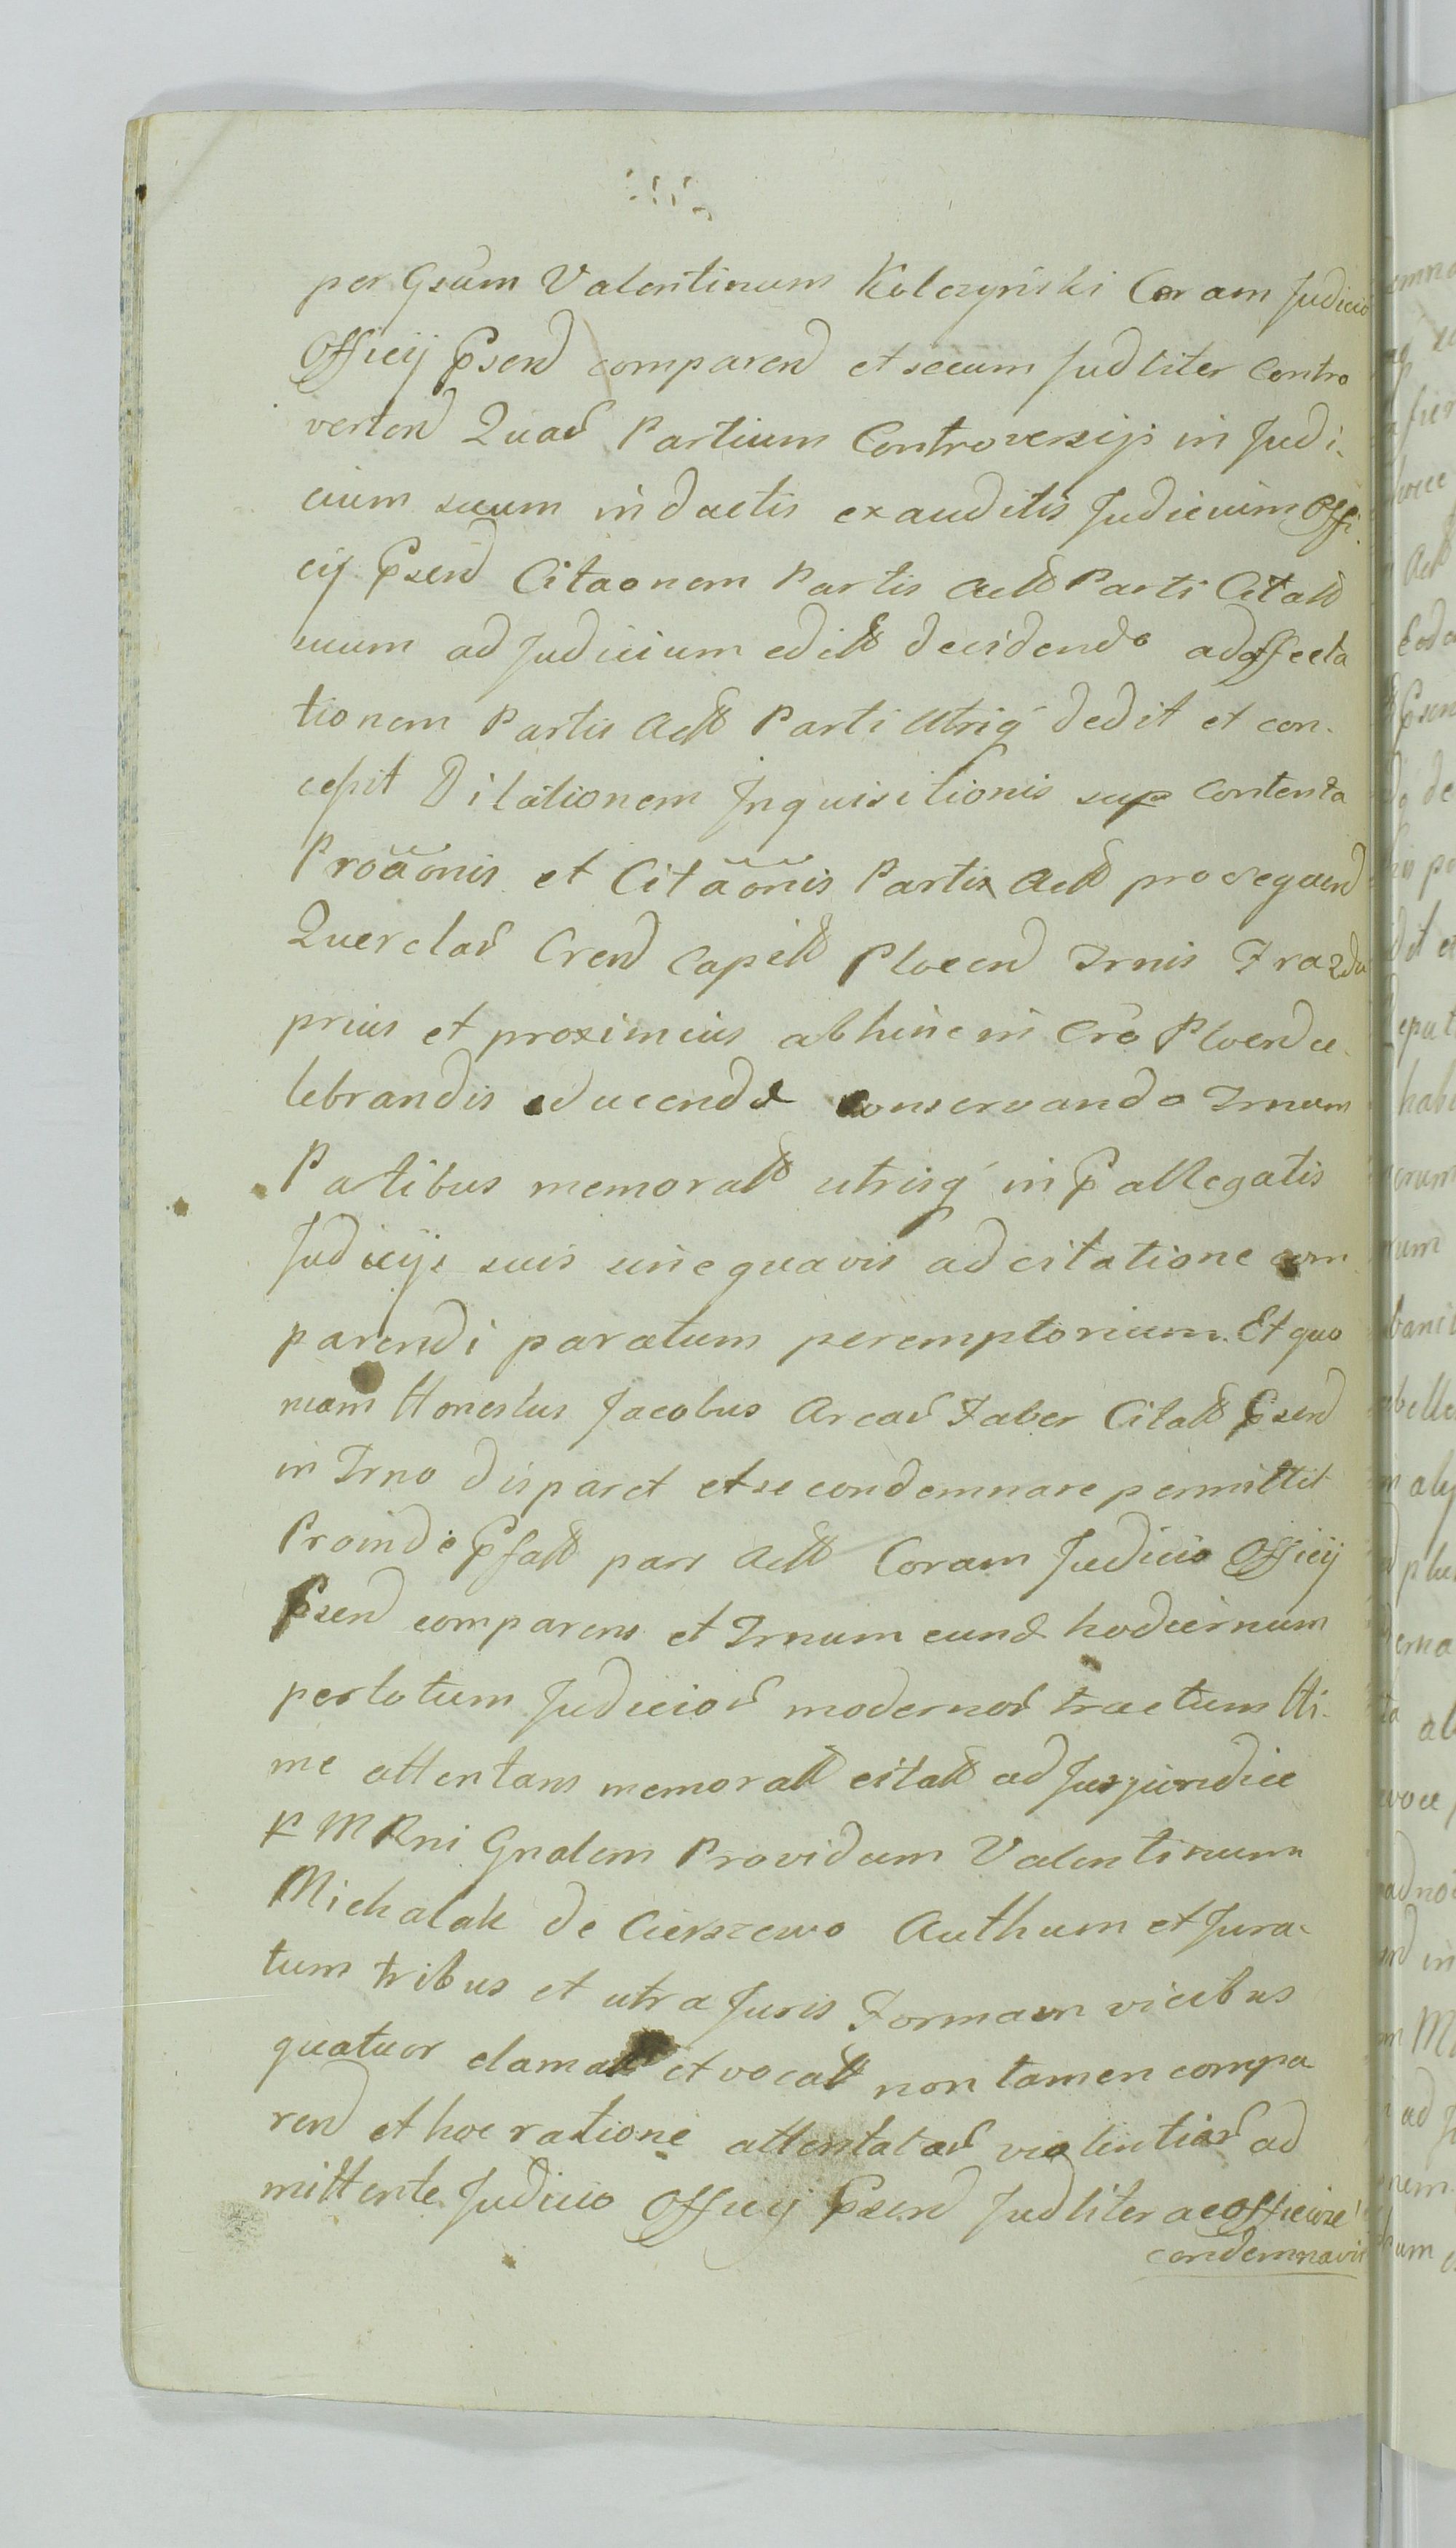 per Gsum Valentinum Kolczyński Coram Judicio
Officij Psend comparend et secum Judliter Contro
vertend Quar Partium Controversijs in Judi.
cium suum inductis exauditis Judicium Offi.
cij Psend Citaonem Partis Actt Parti Citatt
suum ad Judicium editt decidendo ad affecta
tionem Partis Actt Parti Utriq dedit et con.
cessit Dilationem Inquisitionis sup Contenta
Proāonis et Citāonis Partis Actt prosequend
Querelar Crend Capitt Plocend Trnis
prius et proximius abhinc in Cro Plocend ce.
lebrandis educenda conservando Trnum
Patibus memoratt utrisq in Pallegatis
Judicijs suis sine quavis adcitatione com
parendi paratum peremptorium. Et quo
niam Honestus Jacobus Arcar Faber Citatt Psend
in Trno disparet et se condemnare permittit
Proinde Pfatt pars Actt Coram Judicio Officij
Psend comparens et Trnum eund hodiernum
per totum Judicior modernor tractum tti.
me attentans memoratt citatt ad Jus juridice
P M Rni Gnalem Providum Valentinum
Michalak de Cierszewo Authum et Jura.
tum tribus et utra Juris Formam vicibus
quatuor clamatt et vocatt non tamen compa
rend et hoc ratione attentatar violentiar ad
mittente Judicio Officij Psend Judliter ac officiose
condemnavit